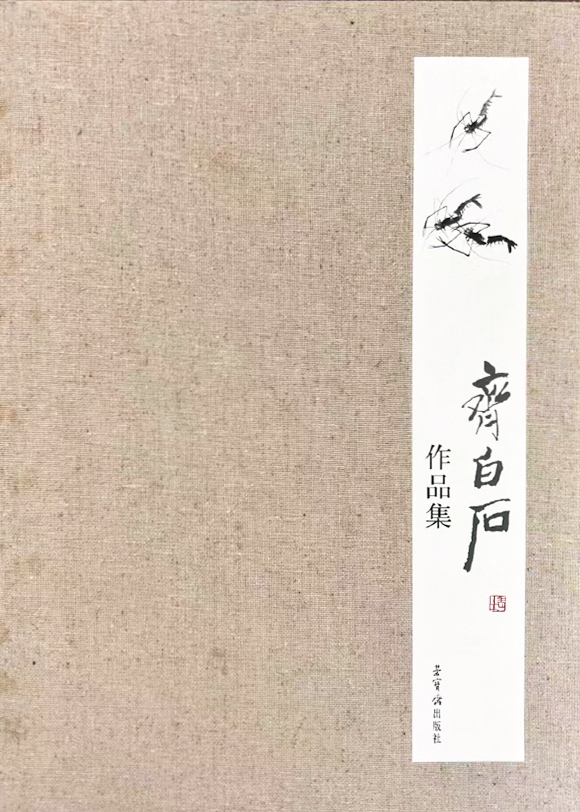 齊白石
作品集
荣寶齋出版社